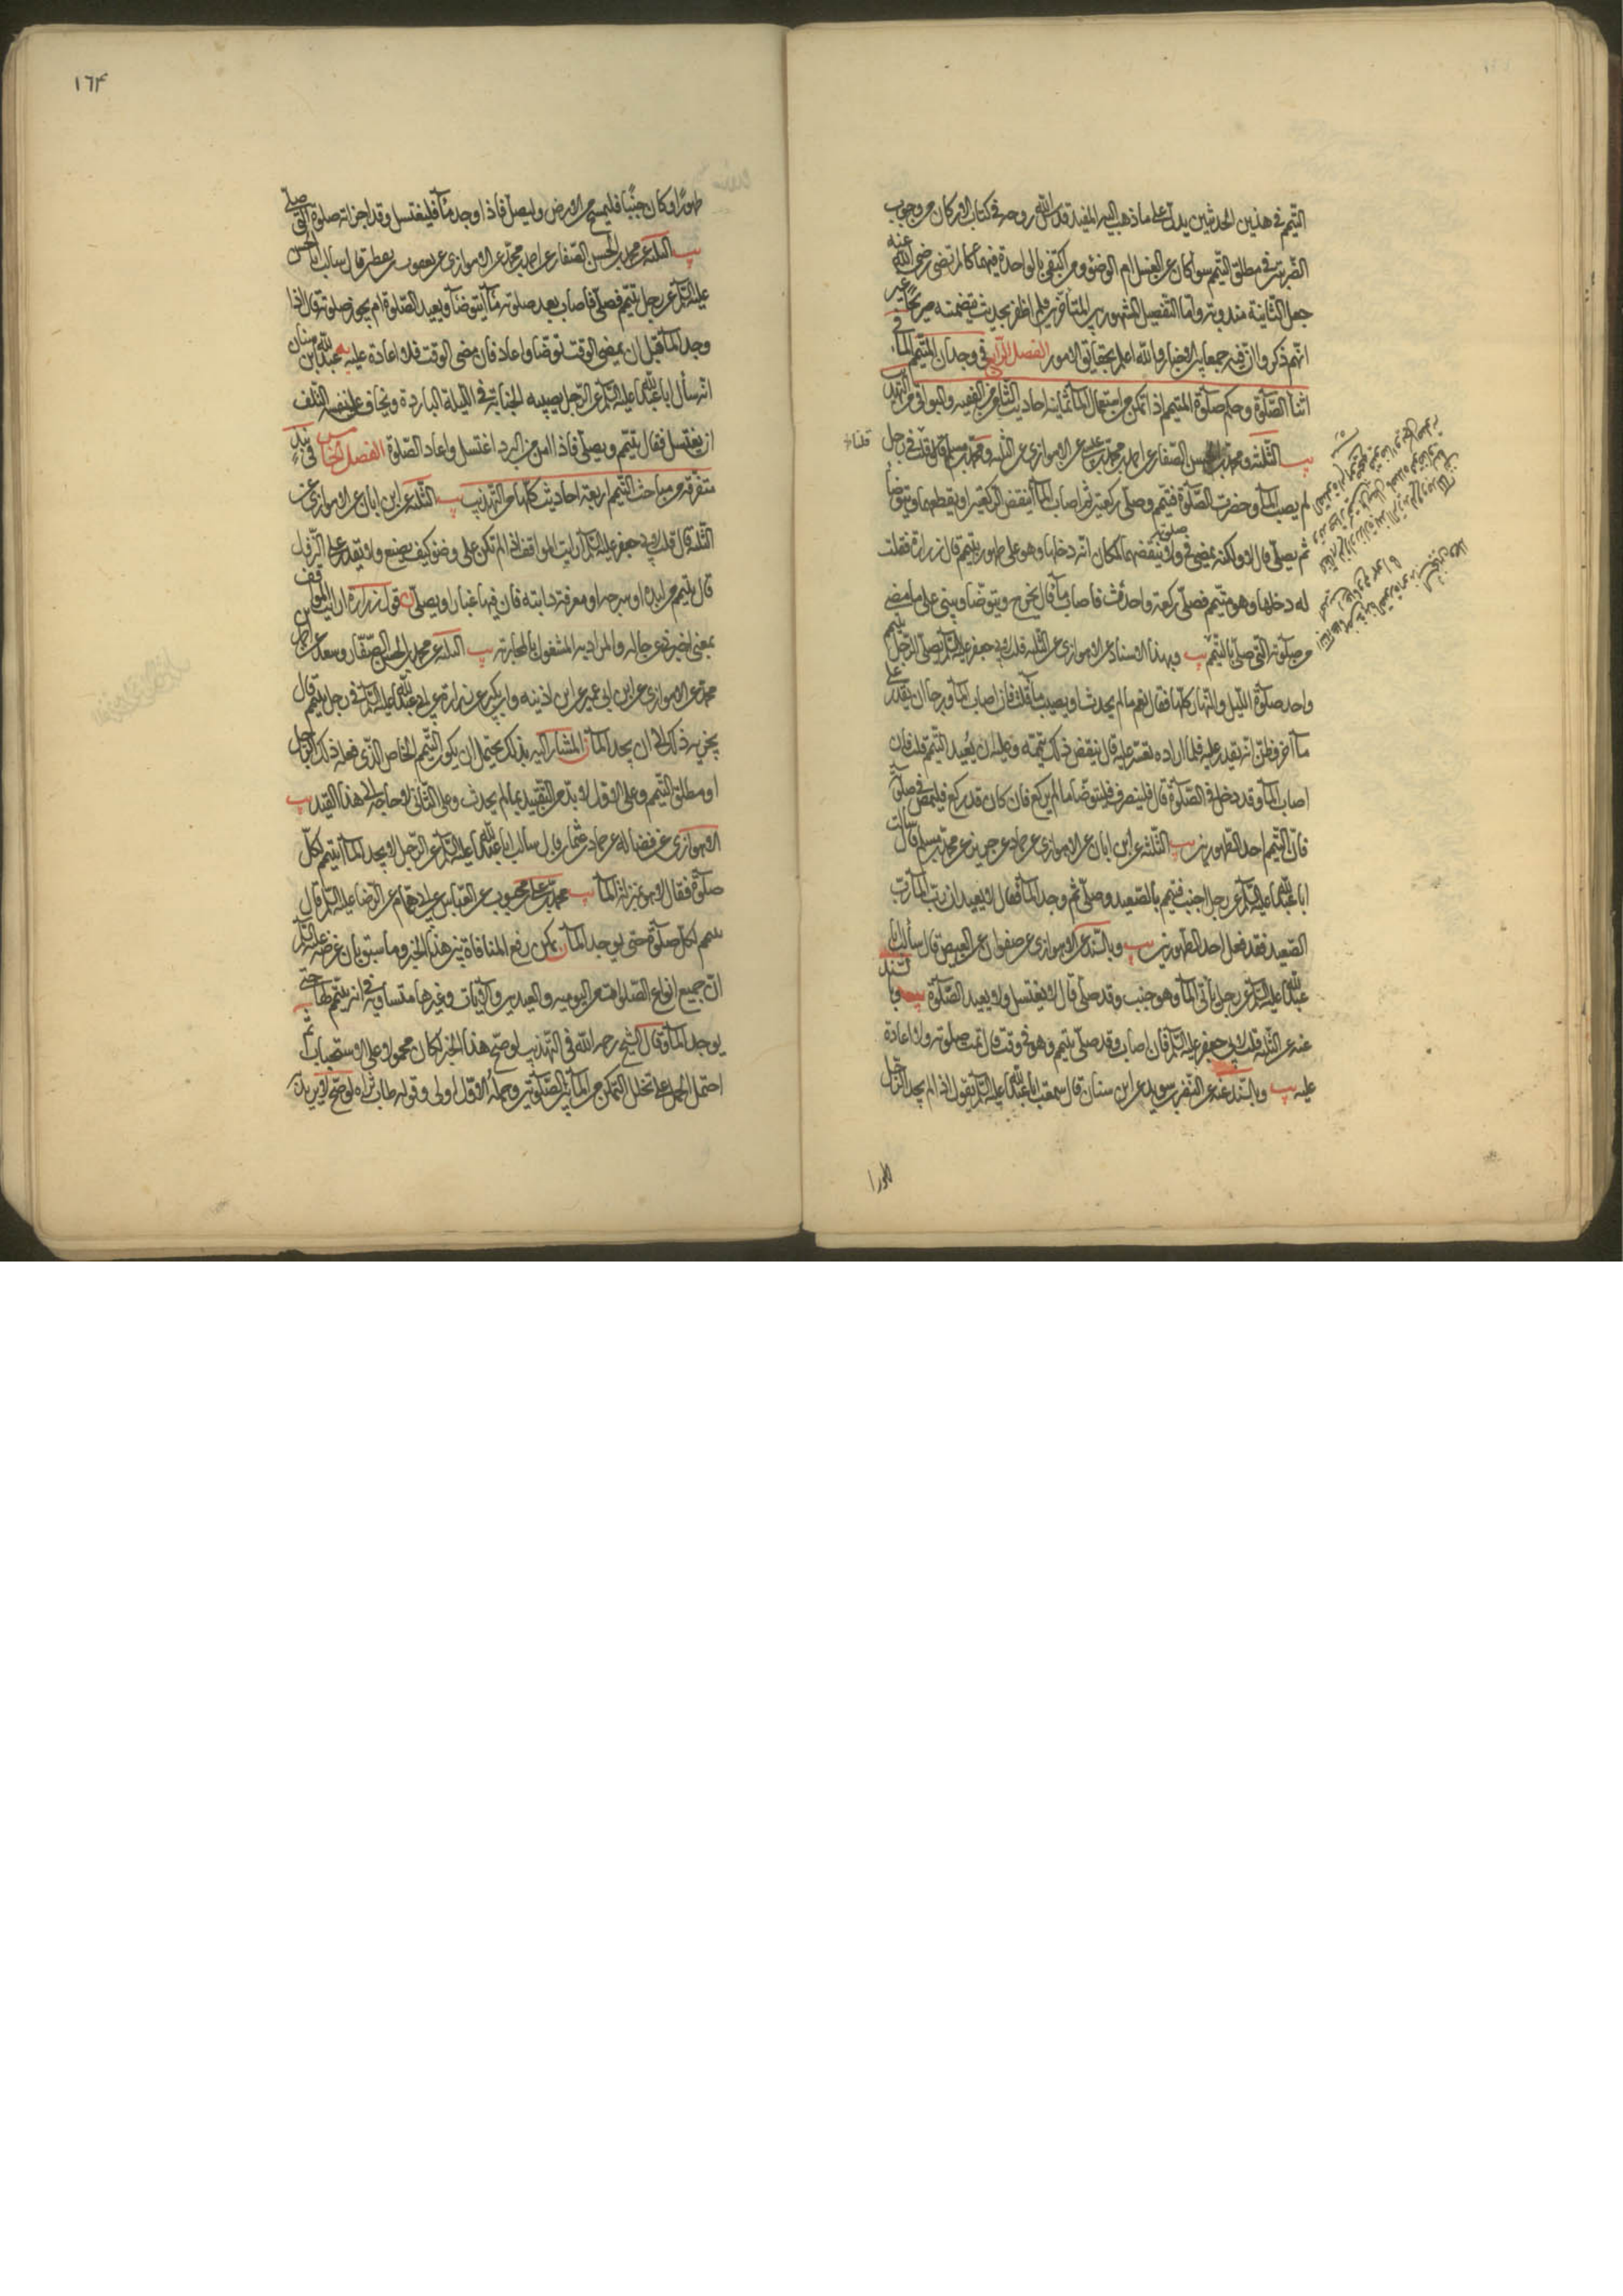 التيمم في هذين الحديثين يدل على ما ذهب اليه المفيد قدس الله روحه في كتاب الاركان من وجوب
الضربتين في مطلق التيمم سواء كان عن الغسل ام الوضوء ومن اكتفى بالواحدة فيهما كالمرتضى رضي الله عنه
جعل الثانية مندوبة واما التفصيل المشهور بين المتأخرين فلم اظفر بحديث يتضمنه صريحا غير
انهم ذكروا ان فيه جمعا بين الاخبار والله اعلم بحقايق الامور الفصل الرابع في وجدان المتيمم الماء في
اثنأ الصلوة وحكم صلوة المتيمم اذا تمكن من استعمال المأ ثمانية احاديث الثامن من الفقيه والبواقي من التهذيب
يب الثلثة ومحمد بن الحسن الصفار عن احمد بن محمد بن عيسى عن الاهوازي عن الثلثة ومحمد بن مسلم قال قلت في رجل
لم يصب المأ وحضرت الصلوة فتيمم وصلى ركعتين ثم اصاب المأ اينقض الركعتين او يقطعهما ويتوضأ
ثم يصلي قال لا ولكنه يمضي في صلوته ولا ينقضهما لمكان انه دخلها وهو على طهور بتيمم قال زرارة فقلت
له دخلها وهو متيمم فصلى ركعة واحدة فاصاب مأ قال يخرج ويتوضأ ويبني على ما مضى
من صلوته التي صلى بالتيمم يب وبهذا الاسناد عن الاهوازي عن الثلثة قلت لابي جعفر عليه السلم يصلي الرجل بتيمم
واحد صلوة الليل والنهار كلها فقال نعم ما لم يحدث او يصيب مأ قلت فان اصاب المأ ورجا ان يقدر على
مأ آخر وظن انه يقدر عليه فلما اراده تعسر عليه قال ينقض ذلك تيممه وعليه ان يعيد التيمم قلت فان
اصاب المأ وقد دخل في الصلوة قال فلينصرف فليتوضأ ما لم يركع فان كان قد ركع فليمض في صلوته
فان التيمم احد الطهورين يب الثلثة عن ابن ابان عن الاهوازي عن حماد عن حريز عن محمد بن مسلم قال سألت
ابا عبد الله عليه السلم عن رجل اجنب فتيمم بالصعيد وصلى ثم وجد المأ فقال لا يعيد ان رب المأ رب
الصعيد فقد فعل احد الطهورين يب وبالسند عن الاهوازي عن صفوان عن العيص قال سألت ابا
عبد الله عليه السلم عن رجل يأتي المأ وهو جنب وقد صلى قال لا يغتسل ولا يعيد الصلوة يب وبالسند
عنه عن الثلثة قلت لابي جعفر عليه السلم فان اصاب المأ وقد صلى بتيمم وهو في وقت قال تمت صلوته ولا اعادة
عليه يب وبالسند عنه عن النضر بن سويد عن ابن سنان قال سمعت ابا عبد الله عليه السلم يقول اذا لم يجد الرجل
طهورا
١٦٤
طهورا وكان جنبا فليمسح من الارض وليصل فاذا وجد مأ فليغتسل وقد اجزأته صلوته التي صلى
يب الثلثة عن محمد بن الحسن الصفار عن احمد بن محمد عن الاهوازي عن يعقوب بن يقطين قال سالت ابا الحسن
عليه السلم عن رجل تيمم فصلى فاصاب بعد صلوته مأ أيتوضأ ويعيد الصلوة ام يجوز صلوته قال اذا
وجد المأ قبل ان يمضي الوقت توضأ واعاد فان مضى الوقت فلا اعادة عليه يه عبد الله ابن سنان
انه سأل ابا عبد الله عليه السلم عن الرجل يصيبه الجنابة في الليلة الباردة ويخاف على نفسه التلف
ان يغتسل فقال يتيمم ويصلي فاذا امن من البرد اغتسل واعاد الصلوة الفصل الخامس في نبذ
متفرقة من مباحث التيمم اربعة احاديث كلها من التهذيب يب الثلثة عن ابن ابان عن الاهوازي عن
الثلثة قال قلت لابي جعفر عليه السلم ارأيت المواقف اذا لم تكن على وضوء كيف يصنع ولا يقدر على النزول
قال يتيمم من لبده او سرجه او معرفة دابته فان فيها غبارا ويصلي ن قول زرارة ارأيت المواقف
بمعنى اخبرني عن حاله والمراد به المشغول بالمحاربة يب الثلثة عن محمد بن الحسن الصفار وسعد عن احمد بن
محمد عن الاهوازي عن ابن ابي عمير عن ابن اذينه وابن بكير عن زرارة عن ابي عبد الله عليه السلم في رجل تيمم قال
يجزيه ذلك الى ان يجد المأ ن المشار اليه بذلك يحتمل ان يكون التيمم الخاص الذي فعله ذلك الرجل
او مطلق التيمم وعلى الاول لا بد من التقييد بما لم يحدث وعلى الثاني لا حاجة الى هذا القيد يب
الاهوازي عن فضاله عن حماد بن عثمان قال سالت ابا عبد الله عليه السلم عن الرجل لا يجد المأ ايتيمم لكل
صلوة فقال لا هو بمنزلة المأ يب محمد بن علي بن محبوب عن العباس عن ابي همام عن الرضا عليه السلم قال
يتيمم لكل صلوة حتى يوجد المأ ن يمكن رفع المنافاة بين هذا الخبر وما سبق بان غرضه عليه السلم
ان جميع انواع الصلوات من اليوميه والعيدين والآيات وغيرها متساوية في انه يتيمم لها حتى
يوجد المأ وقال الشيخ رحمه الله في التهذيب لو صح هذا الخبر لكان محمولا على الاستحباب ثم
احتمل الحمل على تخلل التمكن من المأ بين الصلوتين وحمله الاول اولى وقوله طاب ثراه لو صح لا يريد به